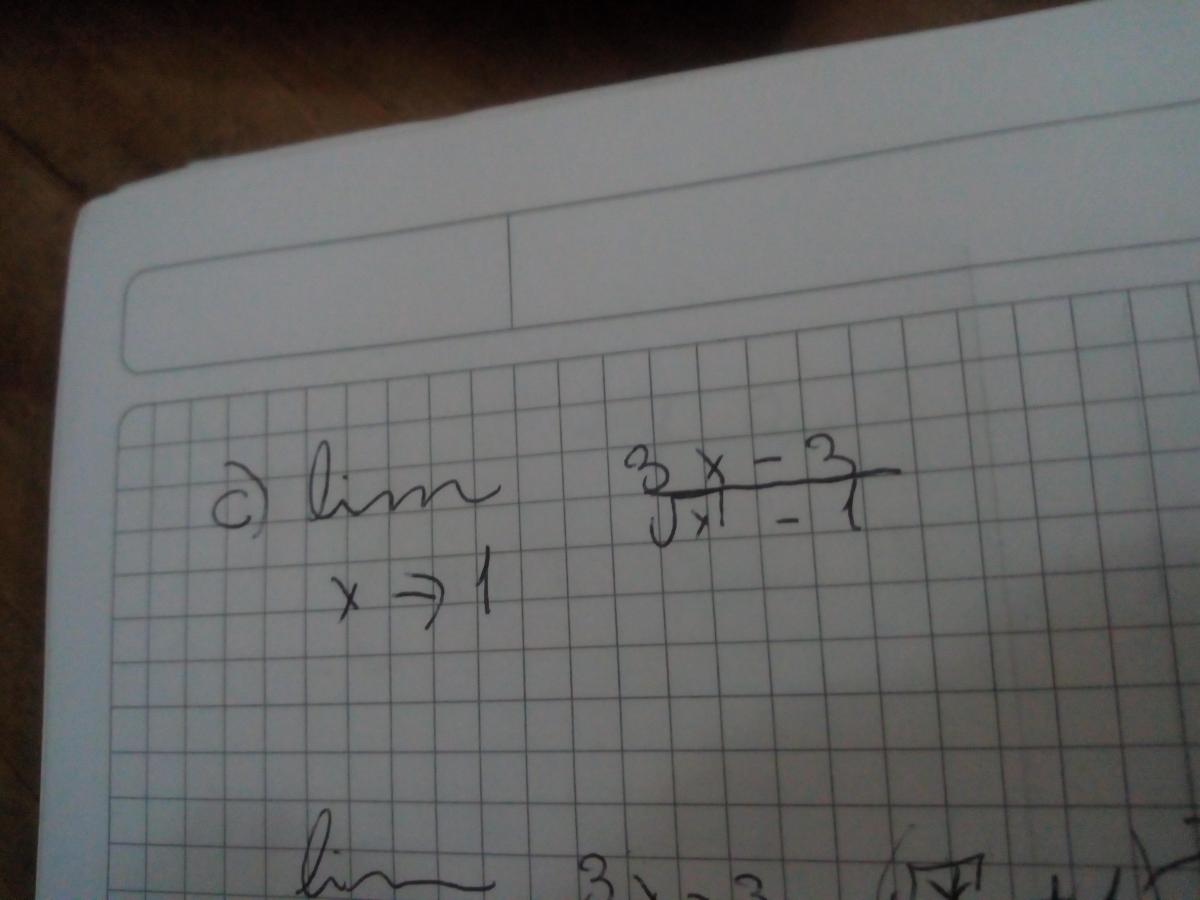 c) lim 3x - 3
√x - 1
x → 1
lim 3x - 3